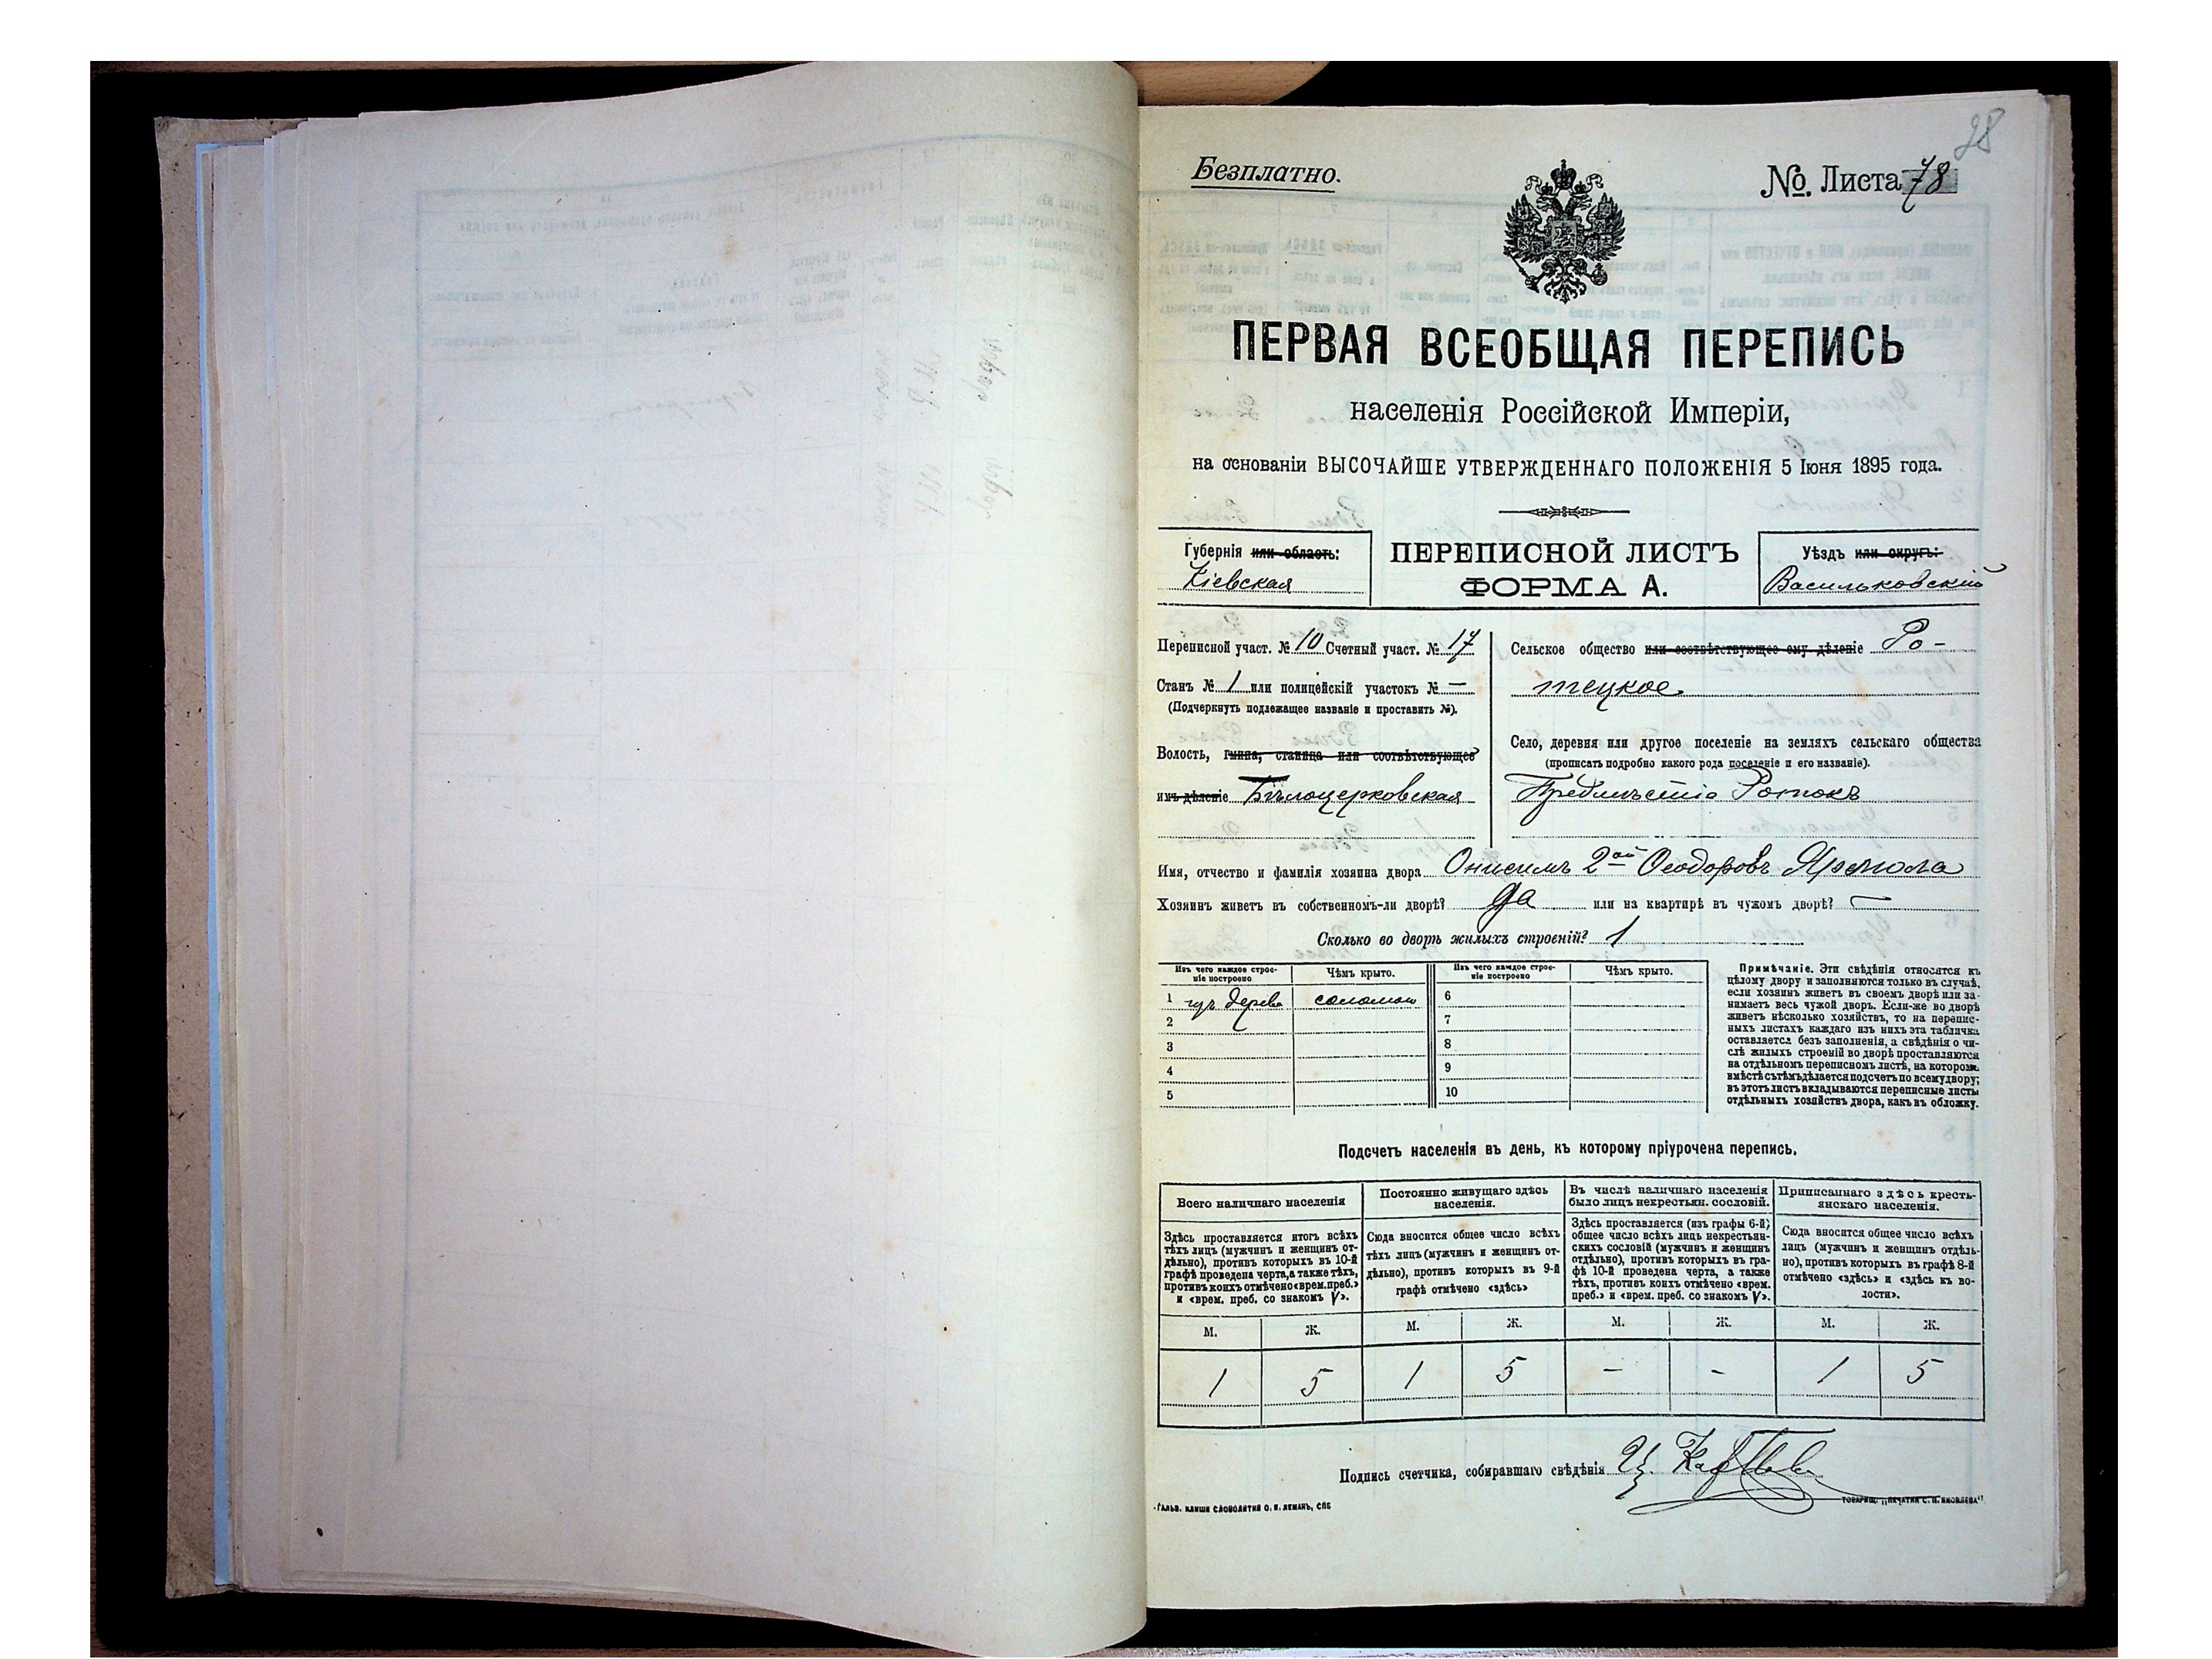 28
Безплатно.
№. Листа 78
ПЕРВАЯ ВСЕОБЩАЯ ПЕРЕПИСЬ
населенія Россійской Имперіи,
на основаніи ВЫСОЧАЙШЕ УТВЕРЖДЕННАГО ПОЛОЖЕНІЯ 5 Іюня 1895 года.
Губернія или область:
Кіевская
ПЕРЕПИСНОЙ ЛИСТЪ
ФОРМА А.
Уѣздъ или округъ:
Васильковскій
Переписной участ. № 10 Счетный участ. № 17
Станъ № 1 или полицейскій участокъ № —
(Подчеркнуть подлежащее названіе и проставить №).
Волость, гмина, станица или соотвѣтствующее
имъ дѣленіе Бѣлоцерковская
Сельское общество или соотвѣтствующее ему дѣленіе Ро-
тецкое
Село, деревня или другое поселеніе на земляхъ сельскаго общества
(прописать подробно какого рода поселеніе и его названіе).
Предмѣстіе Ротокъ
Имя, отчество и фамилія хозяина двора Онисимъ 2ой Ѳеодоровъ Ярмола
Хозяинъ живетъ въ собственномъ-ли дворѣ? да или на квартирѣ въ чужомъ дворѣ? —
Сколько во дворѣ жилыхъ строеній? 1
Изъ чего каждое строе-
ніе построено
Чѣмъ крыто.
Изъ чего каждое строе-
ніе построено
Чѣмъ крыто.
1 изъ дерева соломой 6
2 7
3 8
4 9
5 10
Примѣчаніе. Эти свѣдѣнія относятся къ
цѣлому двору и заполняются только въ случаѣ,
если хозяинъ живетъ въ своемъ дворѣ или за-
нимаетъ весь чужой дворъ. Если-же во дворѣ
живетъ нѣсколько хозяйствъ, то на перепис-
ныхъ листахъ каждаго изъ нихъ эта табличка
оставляется безъ заполненія, а свѣдѣнія о чи-
слѣ жилыхъ строеній во дворѣ проставляются
на отдѣльномъ переписномъ листѣ, на которомъ
вмѣстѣ съ тѣмъ дѣлается подсчетъ по всему двору;
въ этотъ листъ вкладываются переписные листы
отдѣльныхъ хозяйствъ двора, какъ въ обложку.
Подсчетъ населенія въ день, къ которому пріурочена перепись.
Всего наличнаго населенія
Здѣсь проставляется итогъ всѣхъ
тѣхъ лицъ (мужчинъ и женщинъ от-
дѣльно), противъ которыхъ въ 10-й
графѣ проведена черта, а также тѣхъ,
противъ коихъ отмѣчено «врем. преб.»
и «врем. преб. со знакомъ V».
Постоянно живущаго здѣсь
населенія.
Сюда вносится общее число всѣхъ
тѣхъ лицъ (мужчинъ и женщинъ от-
дѣльно), противъ которыхъ въ 9-й
графѣ отмѣчено «здѣсь»
Въ числѣ наличнаго населенія
было лицъ некрестьян. сословій.
Здѣсь проставляется (изъ графы 6-й)
общее число всѣхъ лицъ некрестьян-
скихъ сословій (мужчинъ и женщинъ
отдѣльно), противъ которыхъ въ гра-
фѣ 10-й проведена черта, а также
тѣхъ, противъ коихъ отмѣчено «врем.
преб.» и «врем. преб. со знакомъ V».
Приписаннаго здѣсь кресть-
янскаго населенія.
Сюда вносится общее число всѣхъ
лицъ (мужчинъ и женщинъ отдѣль-
но), противъ которыхъ въ графѣ 8-й
отмѣчено «здѣсь» и «здѣсь къ во-
лости».
М. Ж. М. Ж. М. Ж. М. Ж.
1 5 1 5 - - 1 5
Подпись счетчика, собиравшаго свѣдѣнія
ГАЛЬВ. КЛИШЕ СЛОВОЛИТНИ О. И. ЛЕМАНЪ, СПБ
ТОВАРИЩ. „ПЕЧАТНЯ С. П. ЯКОВЛЕВА"